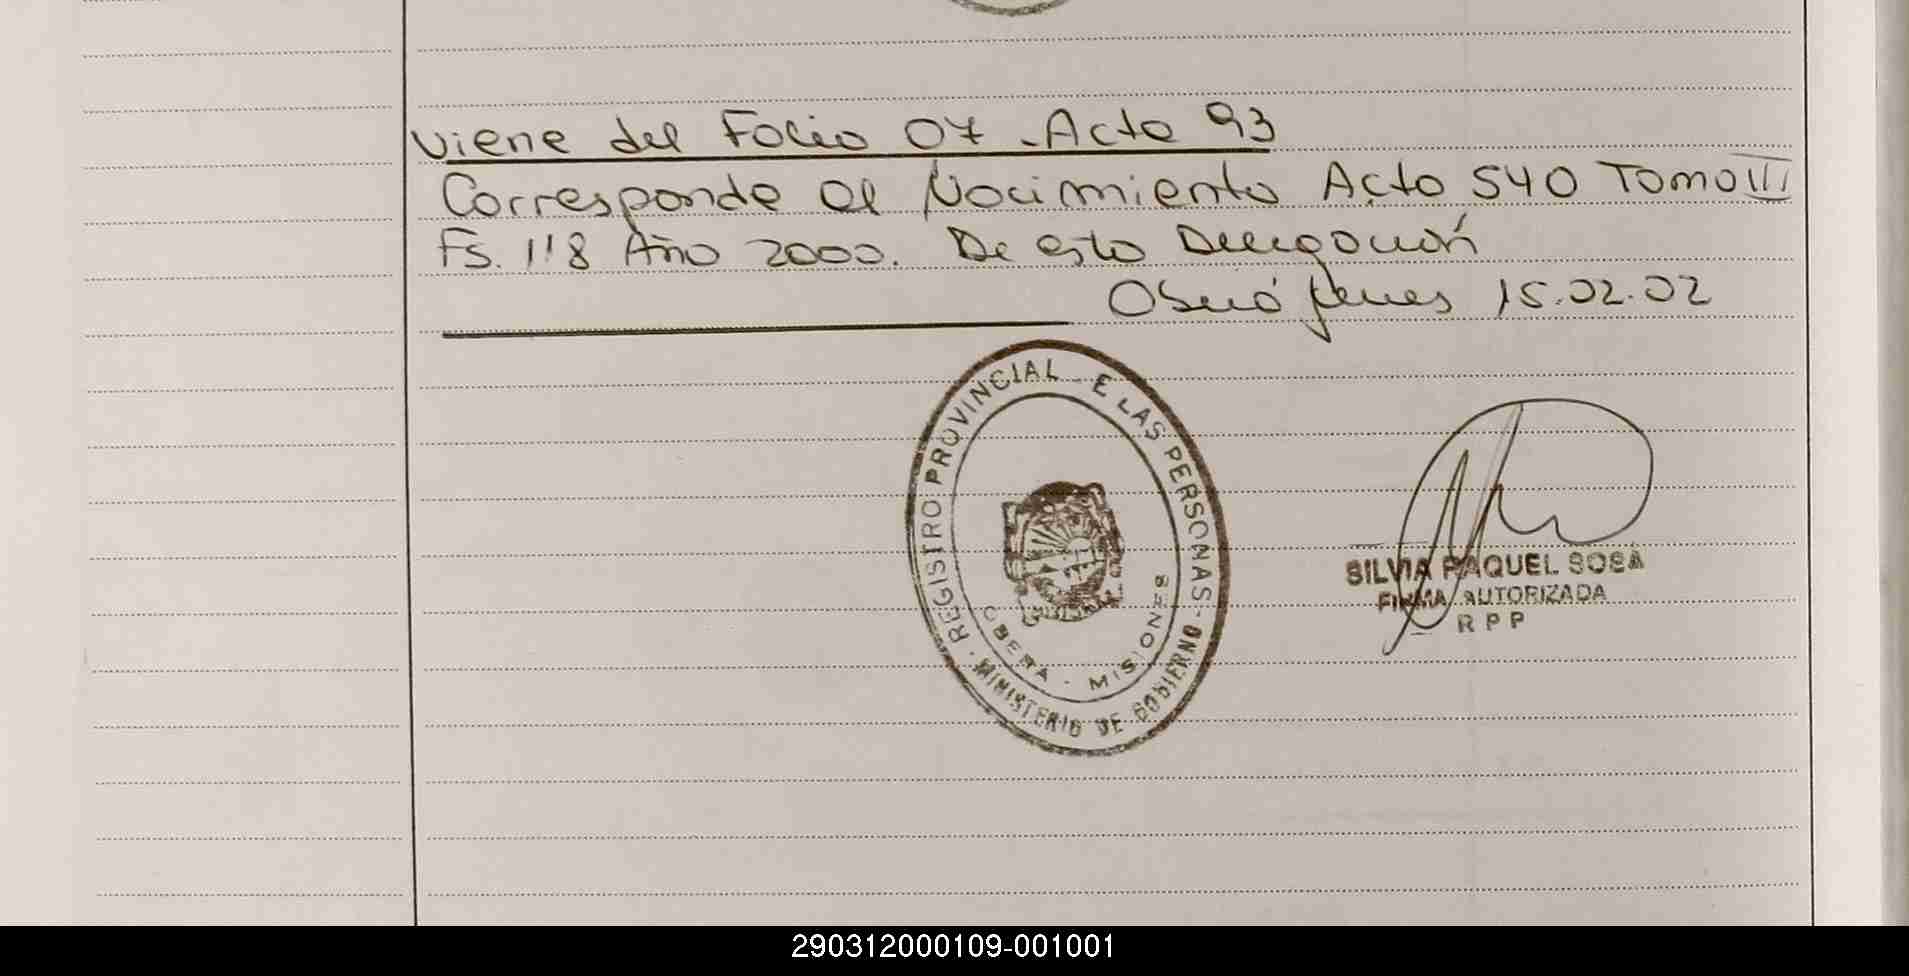 Viene del Folio 07 - Acta 93
Corresponde al Nacimiento Acta 540 Tomo III
Fs. 118 Año 2000. De esta Delegación
Oberá Mnes 15.02.02
REGISTRO PROVINCIAL E LAS PERSONAS - MINISTERIO DE GOBIERNO
OBERA - MISIONES
SILVIA RAQUEL SOSA
FIRMA AUTORIZADA
R P P
290312000109-001001